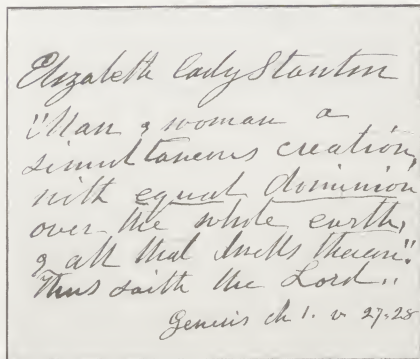 Elizabeth Cady Stanton
"Man & woman a
simultaneous creation,
with equal dominion
over the whole earth,
& all that dwells therein."
Thus saith the Lord..
Genesis ch 1. v 27-28